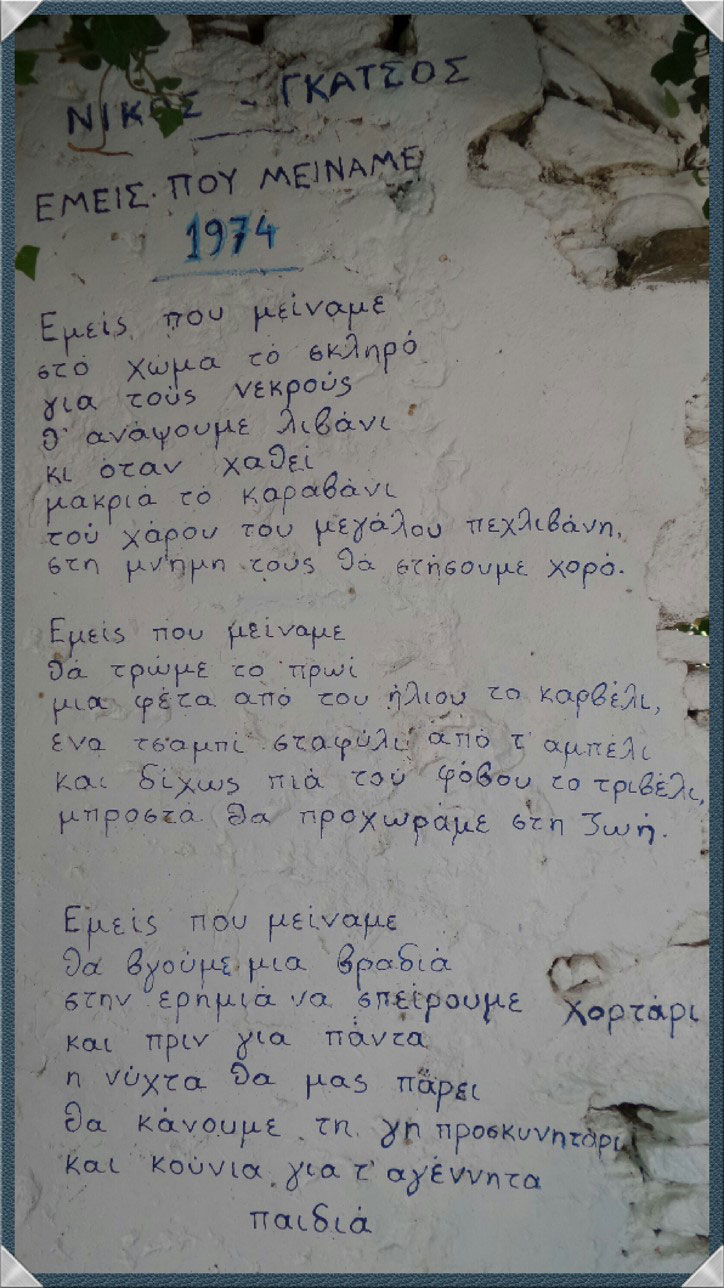 ΝΙΚΟΣ - ΓΚΑΤΣΟΣ
ΕΜΕΙΣ. ΠΟΥ ΜΕΙΝΑΜΕ
1974
Εμείς που μείναμε
στό χώμα τό σκληρό
για τούς νεκρούς
θ' ανάψουμε λιβάνι
κι όταν χαθεί
μακριά τό καραβάνι
τού χάρου του μεγάλου πεχλιβάνη,
στη μνήμη τούς θά στήσουμε χορό.
Εμείς που μείναμε
θά τρώμε το πρωί
μια φέτα από του ήλιου το καρβέλι,
ένα τσαμπί σταφύλι από τ' αμπέλι
και δίχως πιά τού φόβου το τριβέλι,
μπροστά θα προχωράμε στη ζωή.
Εμείς που μείναμε
θά βγούμε μια βραδιά
στην ερημιά να σπείρουμε χορτάρι
και πριν για πάντα
η νύχτα θα μας πάρει
θα κάνουμε τη γη προσκυνητάρι
και κούνια για τ' αγέννητα
παιδιά